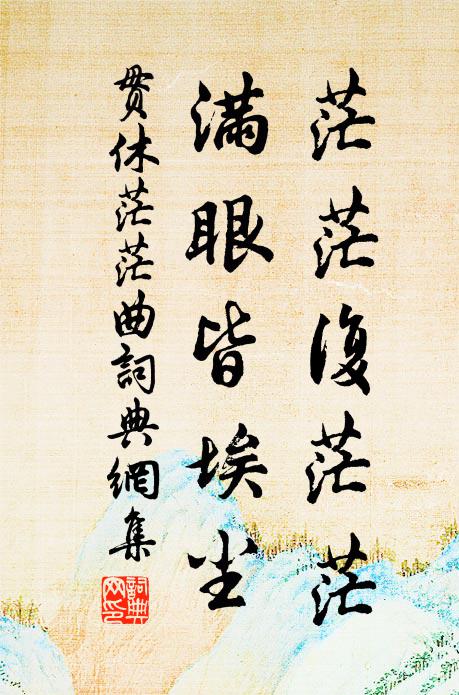 茫茫復茫茫
滿眼皆埃尘
贯休茫茫曲詞典網集
詞典网印